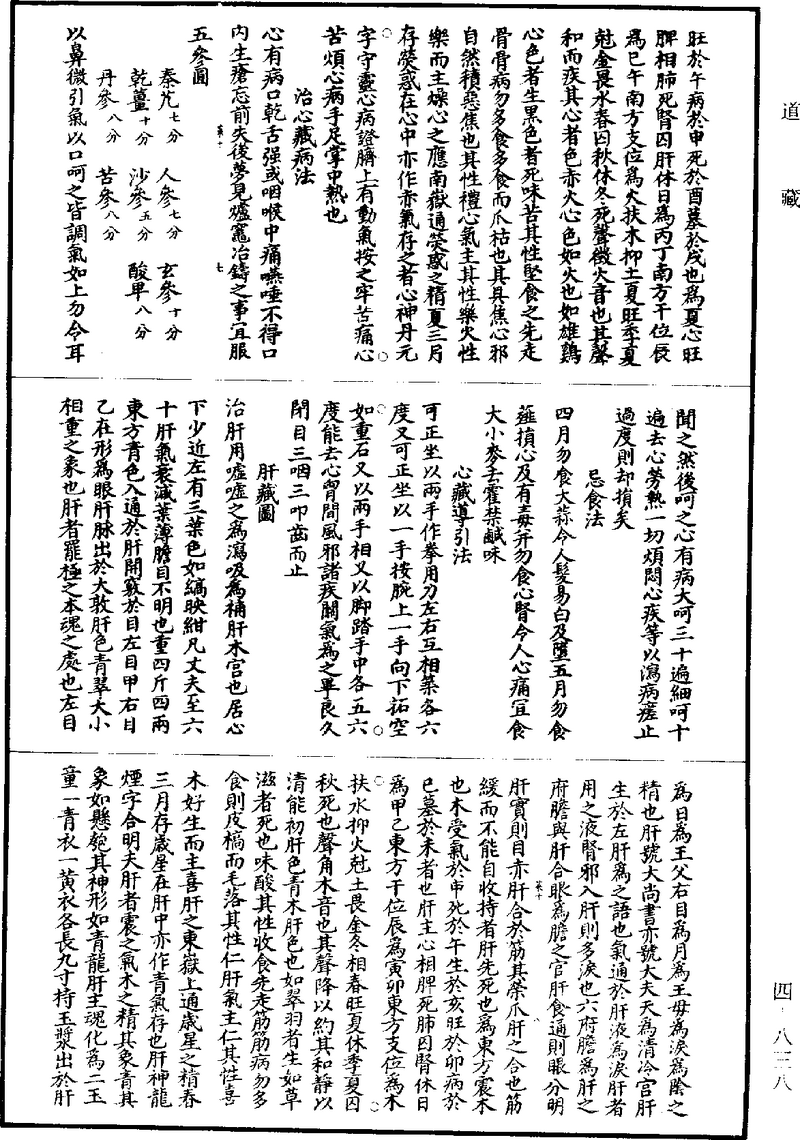 道藏
旺於午病於申死於酉墓於戌也爲夏心旺
脾相肺死腎囚肝休日爲丙丁南方干位辰
爲巳午南方支位爲火扶木抑土夏旺季夏
尅金畏水春囚秋休冬死聲徵火音也其聲
和而疾其心者色赤火心色如火也如雄鷄
心色者生黑色者死味苦其性堅食之先走
骨骨病勿多食多食而爪枯也其具焦心邪
自然積惡焦也其性禮心氣主其性樂火性
樂而主燥心之應南嶽通熒惑之精夏三月
存熒惑在心中亦作赤氣存之者心神丹元
字守靈心病證臍上有動氣按之牢苦痛心
苦煩心病手足掌中熱也
治心藏病法
心有病口乾舌强或咽喉中痛嚥唾不得口
內生瘡忘前失後夢見爐竈冶鑄之事宜服
五參圓
秦艽七分 人參七分 玄參十分
乾薑十分 沙參五分 酸棗八分
丹參八分 苦參八分
以鼻微引氣以口呵之皆調氣如上勿令耳
聞之然後呵之心有病大呵三十遍細呵十
遍去心勞熱一切煩悶心疾等以瀉病瘥止
過度則却損矣
忌食法
四月勿食大蒜令人髮易白及墮五月勿食
薤損心及有毒并勿食心腎令人心痛宜食
大小麥杏藿禁鹹味
心藏導引法
可正坐以兩手作拳用力左右互相築各六
度又可正坐以一手按腕上一手向下拓空
如重石又以兩手相叉以脚踏手中各五六
度能去心胷間風邪諸疾關氣爲之畢良久
閉目三咽三叩齒而止
肝藏圖
治肝用噓噓之爲瀉吸爲補肝木宮也居心
下少近左有三葉色如縞映紺凡丈夫至六
十肝氣衰減葉薄膽目不明也重四斤四兩
東方青色入通於肝開竅於目左目甲右目
乙在形爲眼肝脉出於大敦肝色青翠大小
相重之象也肝者罷極之本魂之處也左目
爲日爲王父右目爲月爲王母爲淚爲陰之
精也肝號大尚書亦號大夫天爲清冷宮肝
生於左肝爲之語也氣通於肝液爲淚肝者
用之液腎邪入肝則多淚也六府膽爲肝之
府膽與肝合眼爲膽之官肝食通則眼分明
肝實則目赤肝合於筋其榮爪肝之合也筋
緩而不能自收持者肝先死也爲東方震木
也木受氣於申死於午生於亥旺於卯病於
巳墓於未者也肝主心相脾死肺囚腎休日
爲甲乙東方干位辰爲寅卯東方支位爲木
扶水抑火尅土畏金冬相春旺夏休季夏囚
秋死也聲角木音也其聲降以約其和靜以
清能初肝色青木肝色也如翠羽者生如草
滋者死也味酸其性收食先走筋筋病勿多
食則皮槁而毛落其性仁肝氣主仁其性喜
木好生而主喜肝之東嶽上通歲星之精春
三月存歲星在肝中亦作青氣存也肝神龍
煙字合明夫肝者震之氣木之精其象青其
象如懸匏其神形如青龍肝主魂化為二玉
童一青衣一黃衣各長九寸持玉漿出於肝
四-八三八